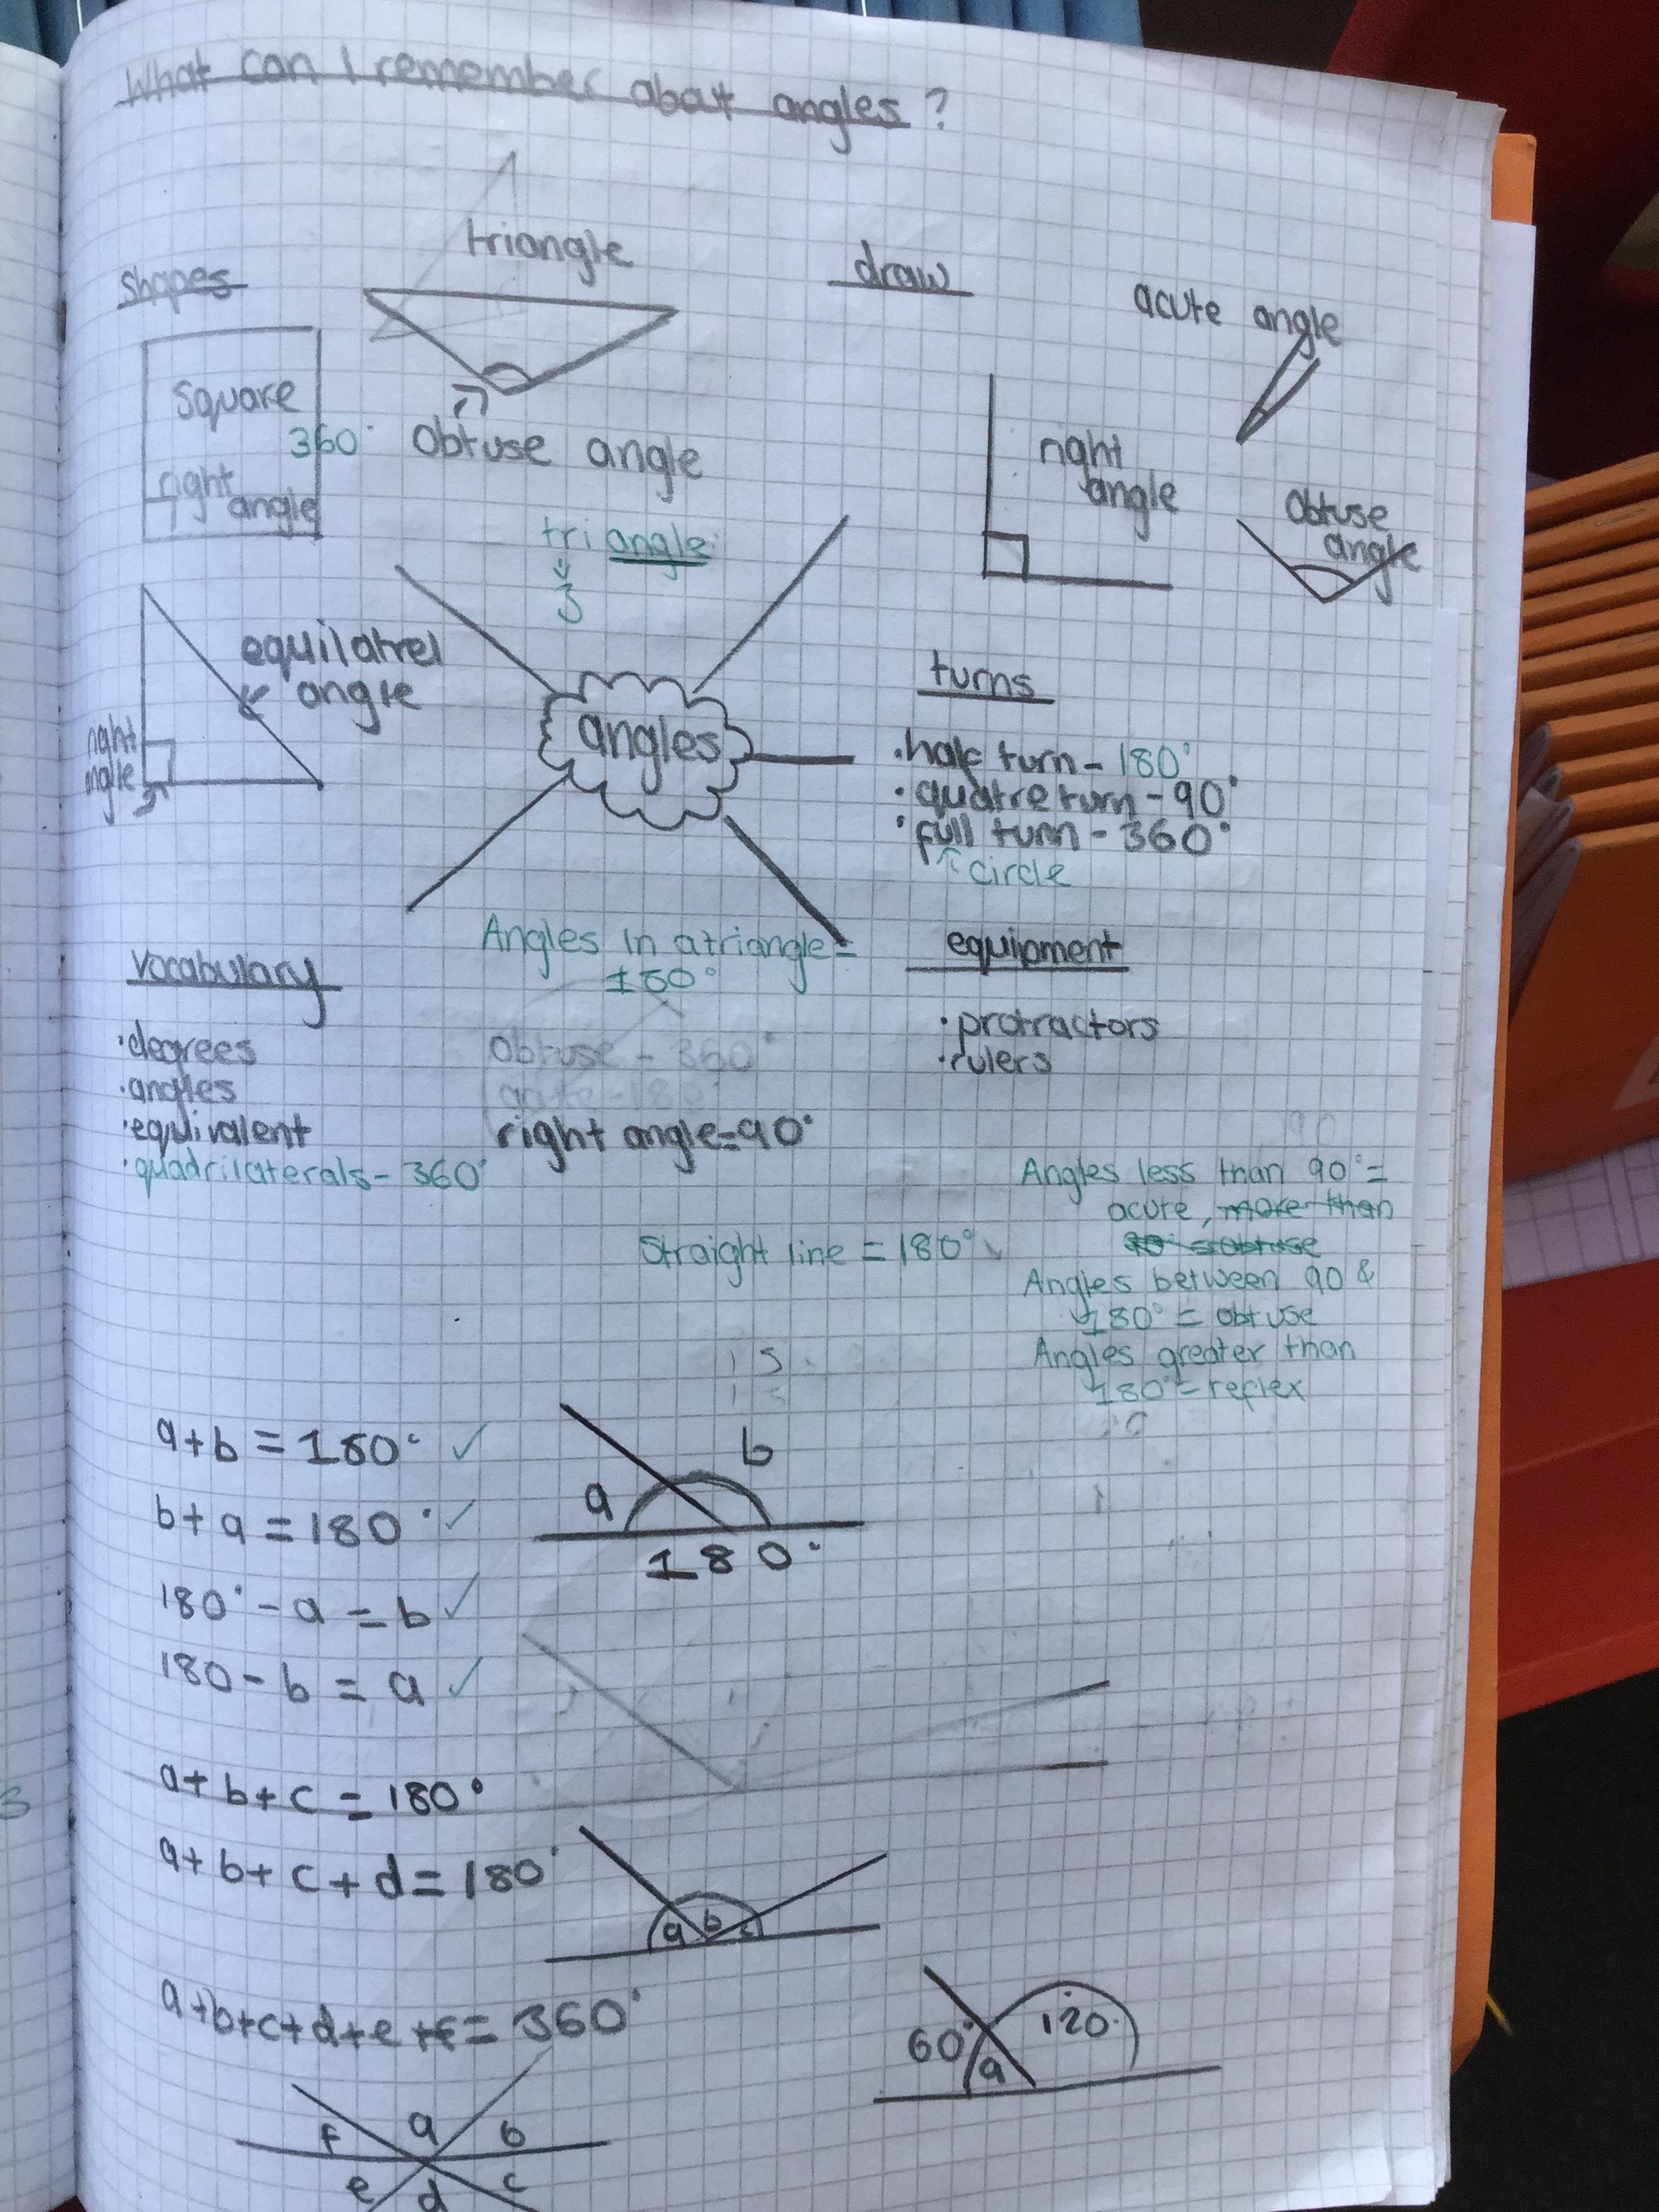 What can I remember about angles?
triangle
shapes
draw
acute angle
square
360°
right
angle
obtuse angle
right
angle
obtuse
angle
triangle
3
equilatrel
angle
right
angle
angles
turns
·half turn - 180°
·quatre turn - 90°
·full turn - 360°
circle
Angles in a triangle =
180°
vocabulary
equipment
·degrees
·angles
·equivalent
·quadrilaterals - 360°
obtuse - 360°
acute - 180°
right angle = 90°
·protractors
·rulers
90
Angles less than 90° =
acute, more than
90° = obtuse
Straight line = 180°
Angles between 90 &
180° = obtuse
Angles greater than
180° = reflex
a + b = 180° ✓
b + a = 180° ✓
180° - a = b ✓
180 - b = a ✓
a
b
180°
a + b + c = 180°
a + b + c + d = 180°
a b c
a+b+c+d+e+f = 360°
60°
a
120°
f a b
e d c
3